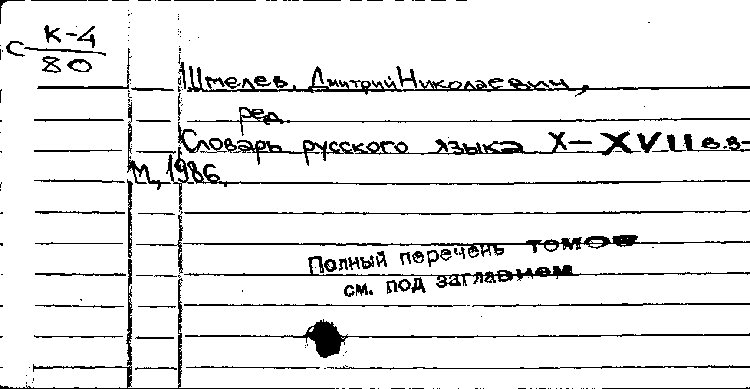 С К-4
80
Шмелев, Дмитрий Николаевич,
ред.
Словарь русского языка X-XVII в.в.-
М., 1986.
Полный перечень томов
см. под заглавием